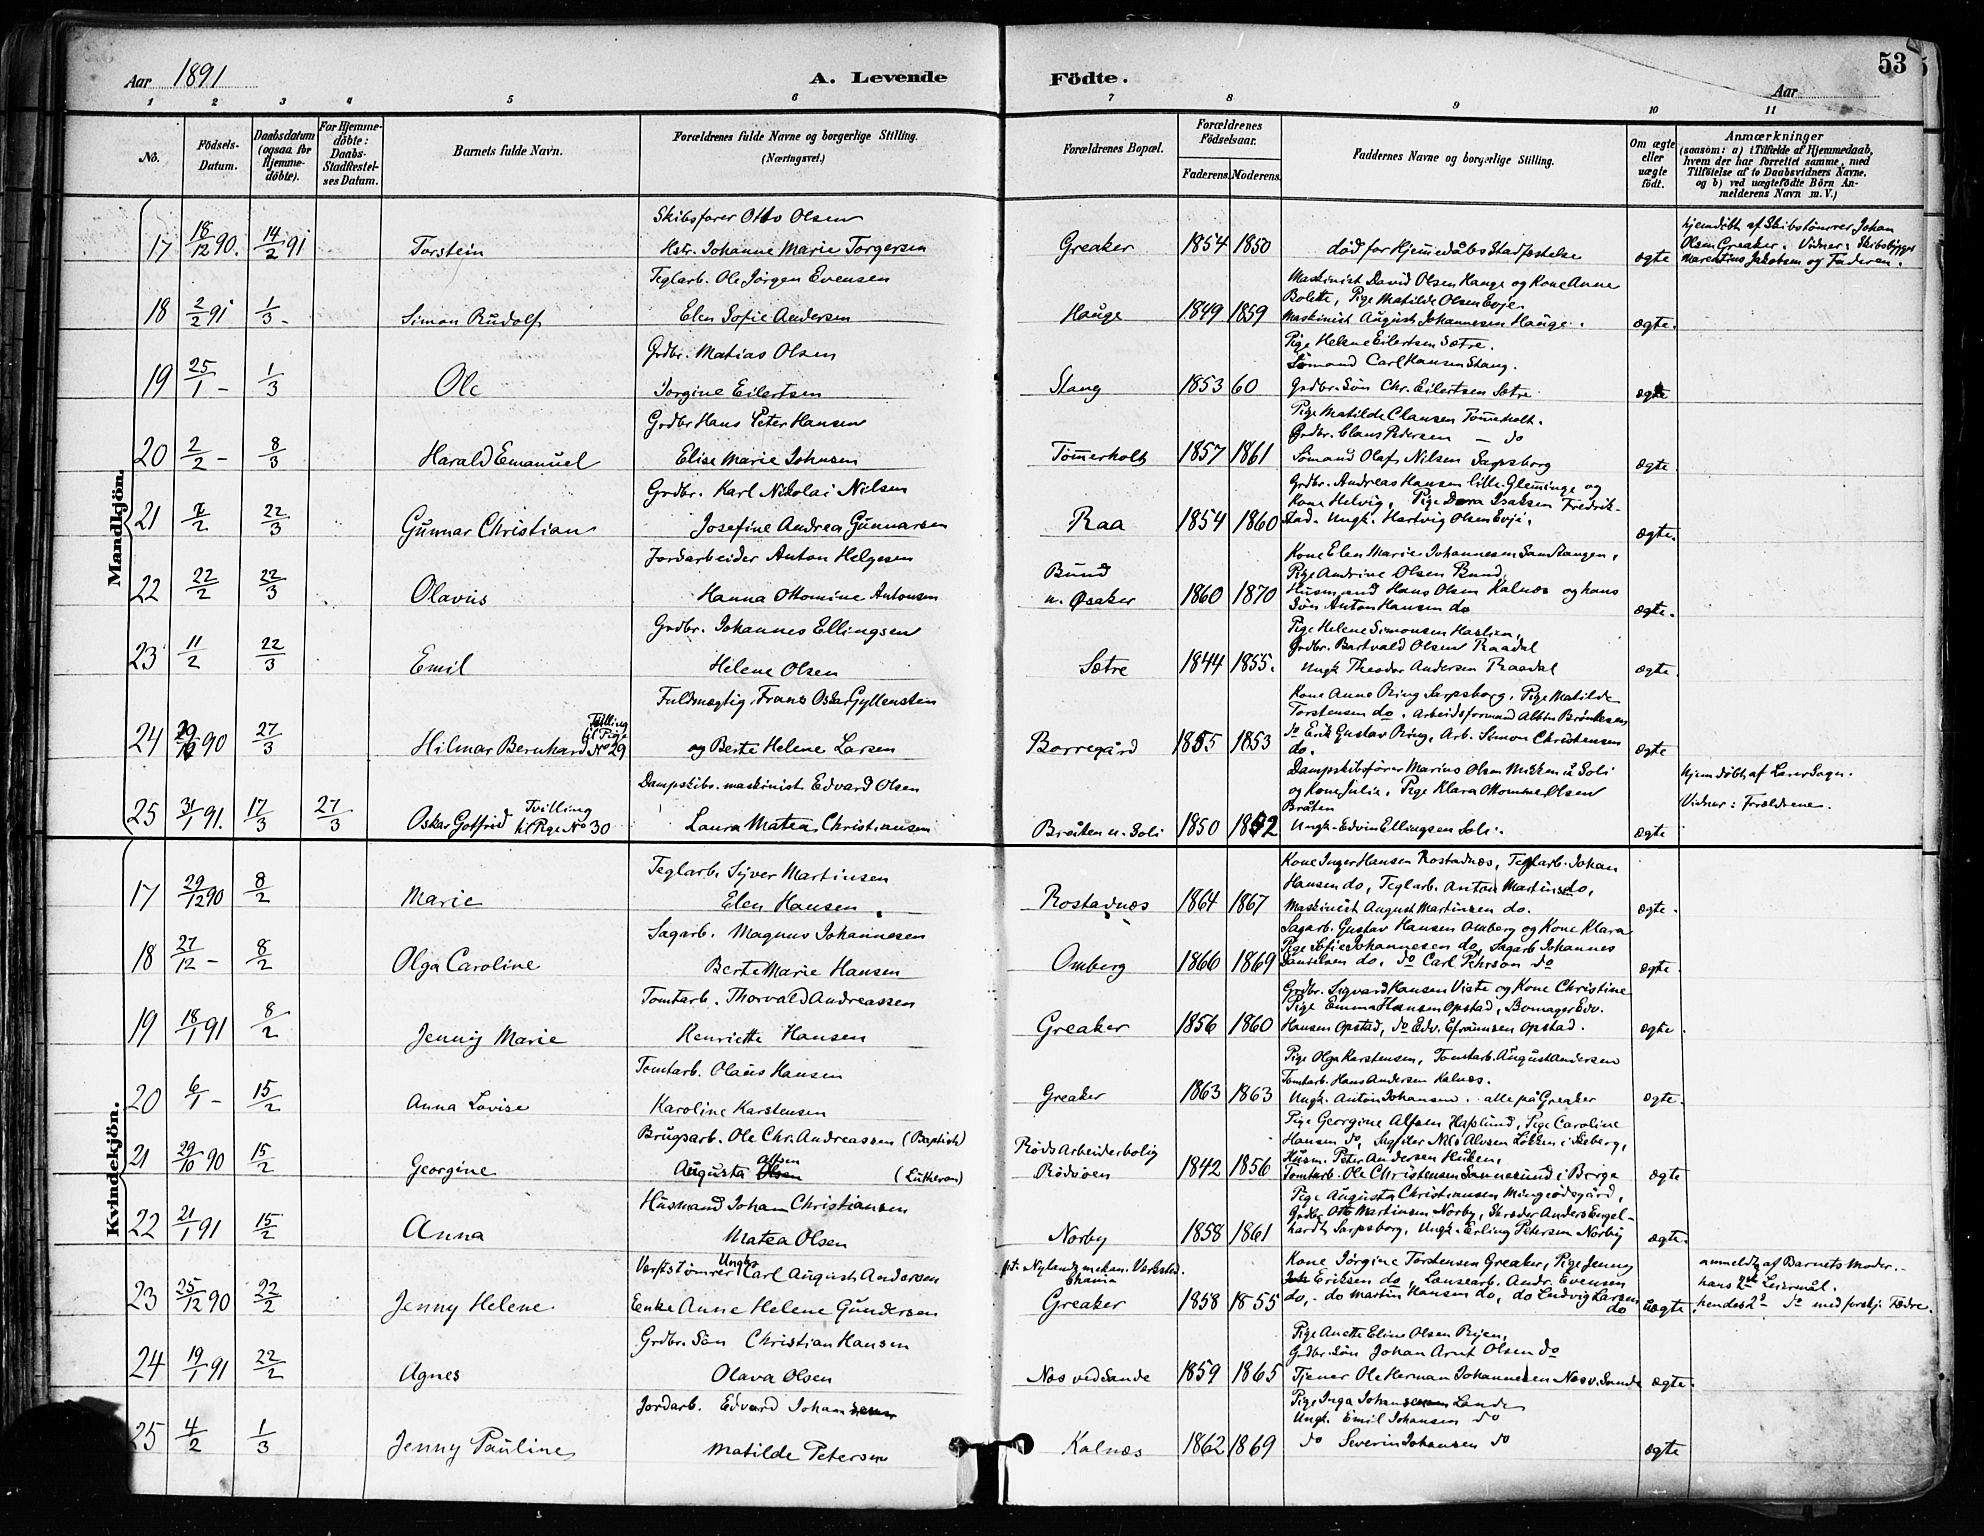 Aar 1891 A. Levende Födte. Aar 53
1 2 3 4 5 6 7 8 9 10 11
No. Födsels-Datum. Daabsdatum (ogsaa for Hjemme-döbte). For Hjemme-döbte: Daabs-Stadfæstel-ses Datum. Barnets fulde Navn. Forældrenes fulde Navne og borgerlige Stilling. (Næringsvei.) Forældrenes Bopæl. Forældrenes Födselsaar. Faderens. Moderens. Faddernes Navne og borgerlige Stilling. Om ægte eller uægte födt. Anmærkninger (saasom: a) i Tilfælde af Hjemmedaab, hvem der har forrettet samme, med Tilföielse af to Daabsvidners Navne, og b) ved uægtefödte Börn An-melderens Navn m.V.)
Mandkjön.
17 18/12 90. 14/2 91 Torstein Skibsfører Otto Olsen
Hstr. Johanne Marie Torgersen Greaker 1854 1850 død for Hjemmedåbs Stadfæstelse ægte hjemdøbt af Skibstømrer Johan
Olsen Greaker. Vidner: Skibsbygger
Marentius Jakobsen og Faderen.
18 2/2 91 1/3 - Simon Rudolf Teglarb. Ole Jørgen Evensen
Elen Sofie Andersen Hauge 1849 1859 Maskinist David Olsen Hauge og Kone Anne
Bolette, Pige Matilde Olsen Evje
Maskinist August Johannesen Hauge. ægte.
19 25/1 - 1/3 Ole Grdbr. Matias Olsen
Jorgine Eilertsen Stang 1853 60 Pige Helene Eilertsen Sætre.
Sømand Carl Hansen Stang.
Grdbr. Søn Chr. Eilertsen Sætre ægte
20 2/2 - 8/3 Harald Emanuel Grdbr Hans Peter Hansen
Elise Marie Johnsen Tømerholt 1857 1861 Pige Matilde Clausen Tømerholt.
Grdbr. Claus Pedersen - do
Sømand Olaf Nilsen Sarpsborg ægte
21 7/2 22/3 Gunnar Christian Grdbr. Karl Nikolai Nilsen
Josefine Andrea Gunnarsen Raa 1854 1860 Grdbr. Andreas Hansen lille Gleminge og
Kone Helvig, Pige Dora Isaksen Fredrik-
stad. Ungk. Hartvig Olsen Evje. ægte.
22 22/2 22/3 Olavus Jordarbeider Anton Helgesen
Hanna Ottomine Antonsen Bund
u. Øsaker 1860 1870 Kone Elen Marie Johannesen Sandtangen,
Pige Andrine Olsen Bund,
Husmand Hans Olsen Kalnæs og hans
Søn Anton Hansen do ægte.
23 11/2 22/3 Emil Grdbr. Johannes Ellingsen
Helene Olsen Sætre 1844 1855. Pige Helene Simonsen Haslien,
Grdbr. Bartvald Olsen Raadal
Ungk. Theodor Andersen Raadal ægte.
24 90 27/3 Hilmar Bernhard Tvilling til Pige No 29 Fuldmægtig Frans Oskar Gyllenstein
og Berte Helene Larsen Borregård 1855 1853 Kone Anne Ring Sarpsborg, Pige Matilde
Torstensen do. Arbeidsformand Albin Brønlesen
do Erik Gustav Ring, Arb. Simon Christensen
do. ægte
25 31/1 91. 17/3 27/3 Oskar Gotfrid Tvilling til Pige No 30 Dampskibs.maskinist Edvard Olsen
Laura Matea Christiansen Bråten u. Soli 1850 1852 Dampskibsfører Marius Olsen Mikken å Soli
og Kone Julie, Pige Klara Ottomine Olsen
Bråten
Ungk. Edvin Ellingsen Soli. ægte hjemdøbt af Larer Sogn.
Vidner: Forældrene.
Kvindekjön.
17 29/12 90 8/2 Marie Teglarb. Syver Martinsen
Elen Hansen Rostadnæs 1864 1867 Kone Inger Hansen Rostadnæs, Teglarb. Johan
Hansen do, Teglarb. Anton Martinsen do,
Maskinist August Martinsen do. ægte.
18 27/12 - 8/2 Olga Caroline Sagarb. Magnus Johannesen
Berte Marie Hansen Omberg 1866 1869 Sagarb. Gustav Hansen Omberg og Kone Klara
Pige Sofie Johannesen do, Sagarb. Johannes
Danielsen do, do Carl Pehrson do ægte.
19 18/1 91 8/2 Jenny Marie Tomtarb. Thorvald Andreassen
Henriette Hansen Greaker 1856 1860 Grdbr. Sigvard Hansen Viste og Kone Christine
Pige Emma Hansen Opstad, Bomager Edv.
Hansen Opstad, do Edv. Efraimsen Opstad. ægte.
20 6/1 - 15/2 Anna Lovise Tomtarb. Olaus Hansen
Karoline Karstensen Greaker 1863 1863 Pige Olga Karstensen, Tomtarb. August Andersen
Tomtarb. Hans Andersen Kalnæs.
Ungk. Anton Johansen. alle på Greaker ægte.
21 29/10 90 15/2 Georgine Brugsarb. Ole Chr. Andreassen (Baptist)
Augusta Olsen Alfsen (Lutheran) Røds Arbeiderbolig
Rødsøen 1842 1856 Pige Georgine Alfsen Hafslund, Pige Caroline
Hansen do, Sagfiler Nils Alvsen Løkken i Skeberg,
Husm. Peter Andersen Huken,
Tomtarb. Ole Christensen Sannesund i Borge ægte
22 21/1 91 15/2 Anna Husmand Johan Christiansen
Matea Olsen Norby 1858 1861 Pige Augusta Christiansen Mingeødegård,
Grdbr. Otto Martinsen Norby, Skræder Anders Engel-
hardt Sarpsborg, Ungk. Erling Petersen Norby ægte.
23 25/12 90 22/2 Jenny Helene Værftstømrer Ungk. Carl August Andersen
Enke Anne Helene Gundersen pt. Nylands mekan. Værksted.
Chania
Greaker 1858 1855 Kone Jørgine Torstensen Greaker, Pige Jenny
Eriksen do, Lansearb. Andr. Evensen
do, - do Martin Hansen do, do Ludvig Larsen
do uægte. anmeldt af Barnets Moder. -
hans 2det Leiermål.
hendes 2d do med forskj. Fædre.
24 19/1 91 22/2 Agnes Grdbr. Søn Christian Hansen
Olava Olsen Næs ved Sande 1859 1865 Pige Anette Eline Olsen Ryen,
Grdbr. Søn Johan Arnt Olsen do
Tjener Ole Herman Johannesen Næs v. Sande ægte.
25 4/2 1/3 Jenny Pauline Jordarb. Edvard Johansen
Matilde Petersen Kalnæs 1862 1869 Pige Inga Johansen Lande
Ungk. Emil Johansen do
do Severin Johansen do ægte